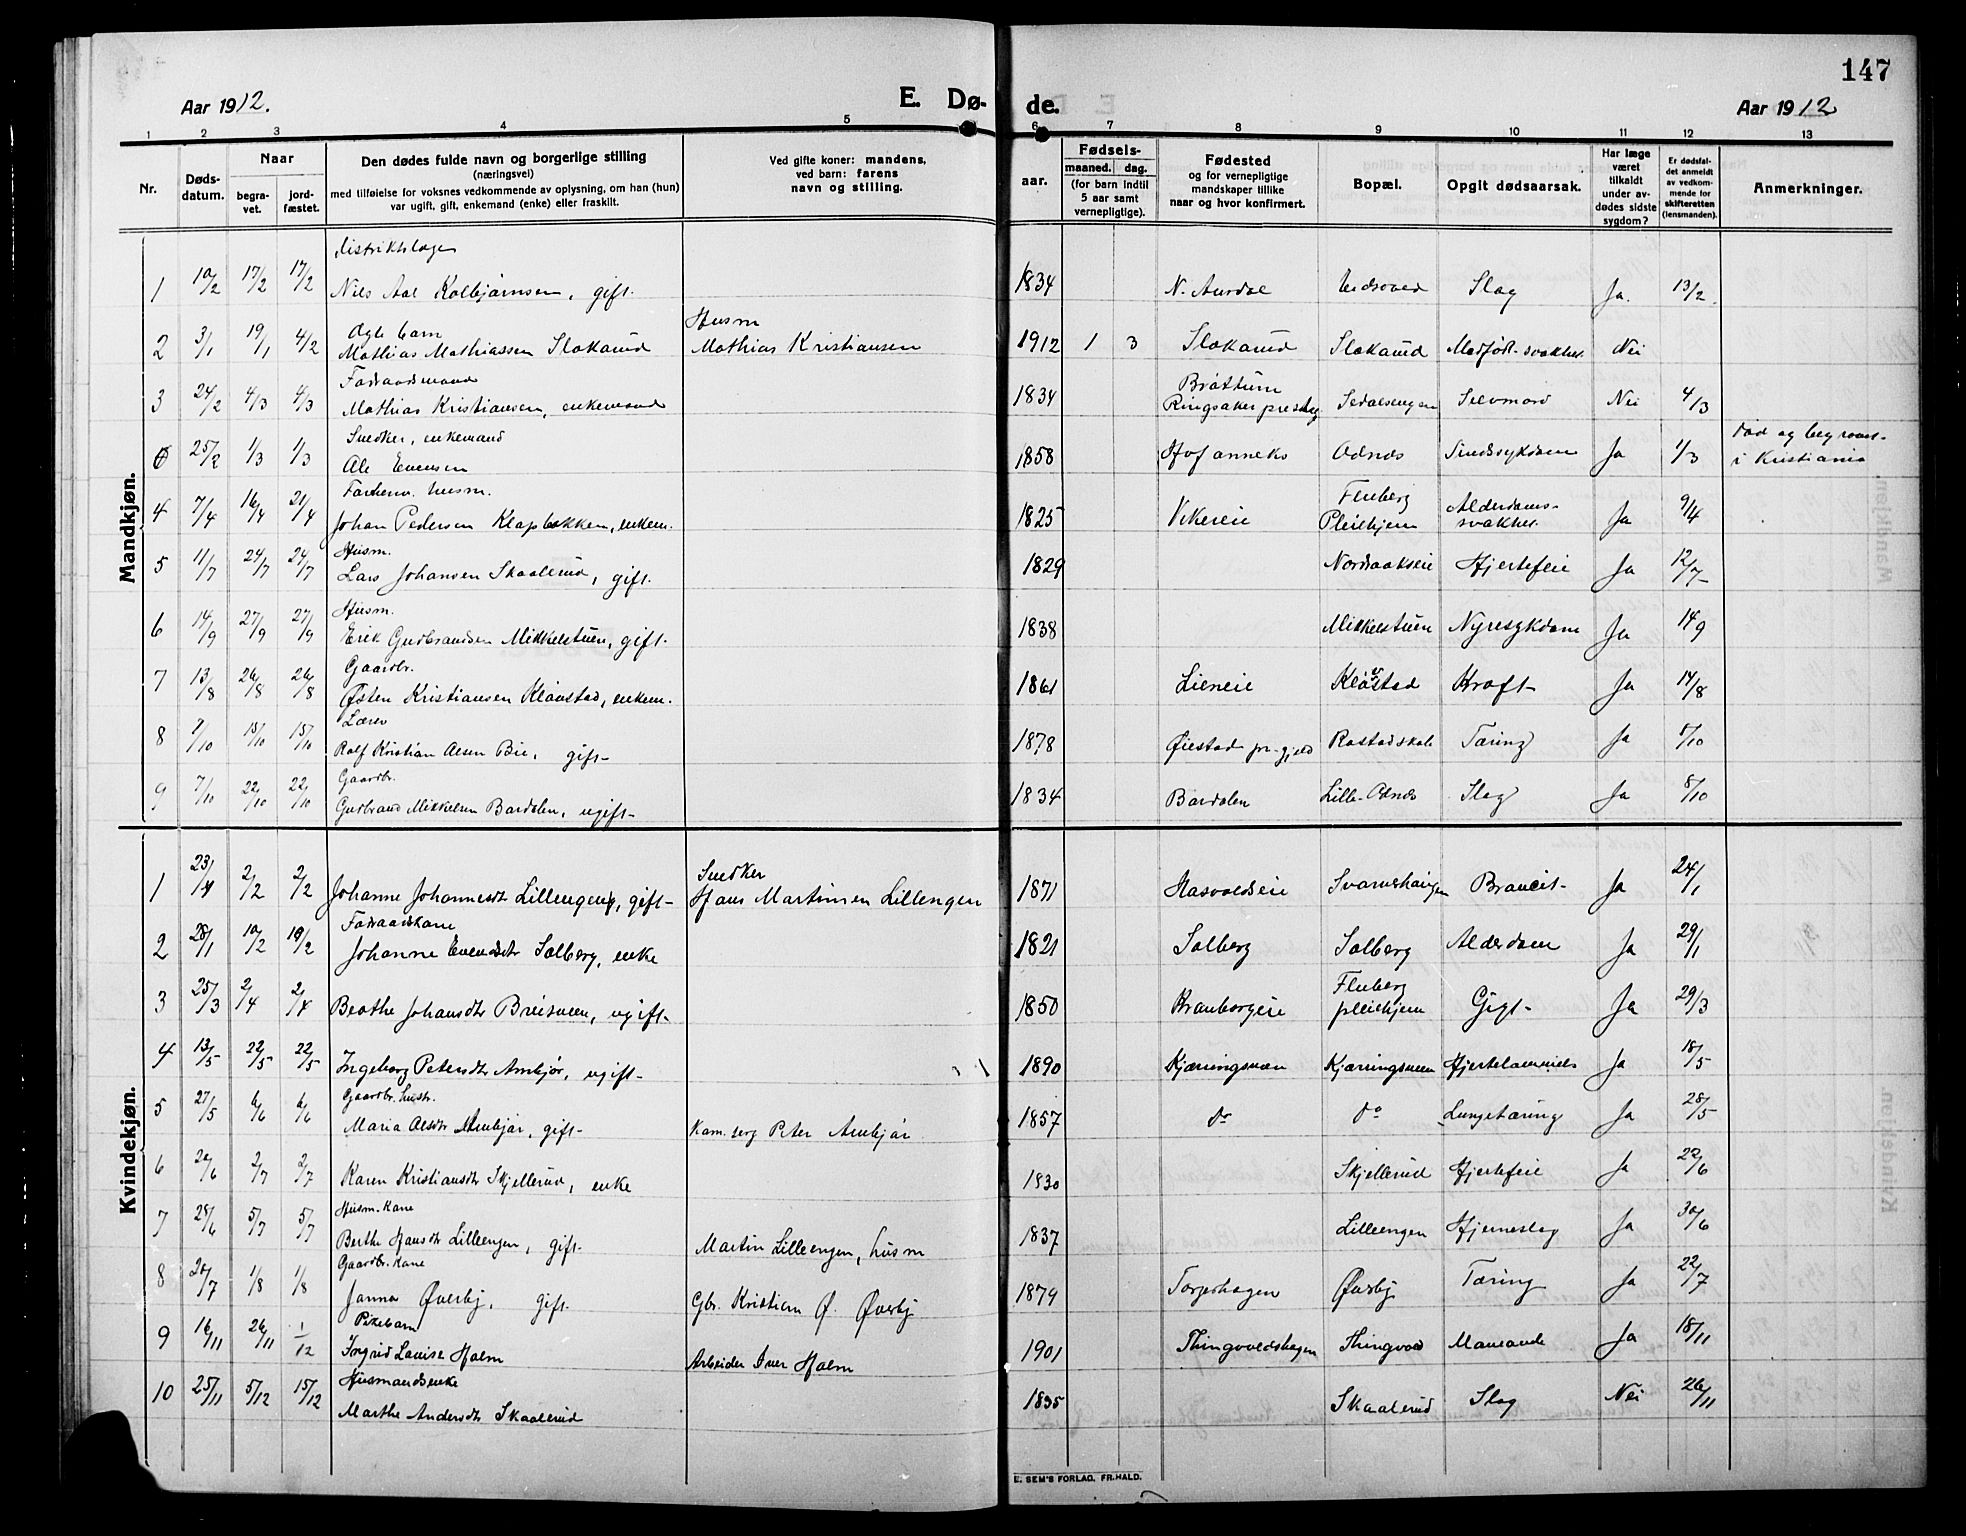 147
Aar 1912.
E. Dø-
de.
Aar 1912
1 2 3 4 5 6 7 8 9 10 11 12 13
Nr.
Døds-
datum.
Naar
begra-
vet.
jord-
fæstet.
Den dødes fulde navn og borgerlige stilling
(næringsvei)
med tilføielse for voksnes vedkommende av oplysning, om han (hun)
var ugift, gift, enkemand (enke) eller fraskilt.
Ved gifte koner: mandens,
ved barn: farens
navn og stilling.
Fødsels-
aar.
maaned.
dag.
(for barn indtil
5 aar samt
vernepligtige).
Fødested
og for vernepligtige
mandskaper tillike
naar og hvor konfirmert.
Bopæl.
Opgit dødsaarsak.
Har læge
været
tilkaldt
under av-
dødes sidste
sygdom?
Er dødsfal-
det anmeldt
av vedkom-
mende for
skifteretten
(lensmanden).
Anmerkninger.
Mandkjøn.
distriktslæge
1 10/2 17/2 17/2 Nils Aal Kolbjørnsen, gift. 1834 N. Aurdal Slag Ja. 13/2.
Ægte barn Husm
2 3/1 19/1 4/2 Mathias Mathiassen Slokarud Mathias Kristiansen 1912 1 3 Slokarud Slokarud Medfødt svakhet Nei
Føderaadsmand Brøttum
3 24/2 4/3 4/3 Mathias Kristiansen, enkemand 1834 Ringsaker prestegj Sedalsengen Selvmord Nei 4/3
Snedker, enkemand død og begravet
25/2 1/3 1/3 Ole Evensen 1858 Hof anneks Odnes Sindssykdom Ja 1/3 i Kristiania
Forhenv. husm. Fluberg Alderdoms-
4 7/4 16/4 21/4 Johan Pedersen Klopbakken, enkem. 1825 Vikereie Pleiehjem svakhet Ja 9/4
Husm.
5 11/7 24/7 24/7 Lars Johansen Skaalerud, gift. 1829 Nordraakseie Hjertefeil Ja 12/7
Husm.
6 14/9 27/9 27/9 Erik Gudbrandsen Mikkelstuen, gift. 1838 Mikkelstuen Nyresykdom Ja 14/9
Gaardbr.
7 13/8 26/8 26/8 Østen Kristiansen Kløvstad, enkem. 1861 Lieneie Kløvstad Kræft Ja 14/8
Lærer
8 7/10 15/10 15/10 Rolf Kristian Olsen Bie, gift 1878 Øiestad pr.gjeld Rostadskole Tæring Ja
Gaardbr.
9 7/10 22/10 22/10 Gudbrand Mikkelsen Bardalen, ugift 1834 Bardalen Lille-Odnes Slag Ja 8/10
Kvindekjøn.
Snedker
1 23/1 2/2 2/2 Johanne Johannesdtr Lillengen, gift Hans Martinsen Lillengen 1871 Hasvoldseie Svarteshaugen Ja 24/1
Føderaadskone
2 28/1 10/2 10/2 Johanne Evensdtr Solberg, enke 1821 Solberg Solberg Alderdom Ja 29/1
Fluberg
3 25/3 2/4 2/4 Berthe Johansdtr Breisveen, ugift 1850 Kranborgeie pleiehjem Gigt Ja 29/3
4 13/5 22/5 22/5 Ingeborg Petersdtr Ambjør, ugift 1890 Kjærringsveen Kjærringsveen Hjertelammelse Ja 18/5
Gaardbr. hustr.
5 27/5 6/6 6/6 Maria Olsdtr Ambjør, gift Kom.serg Peter Ambjør 1857 do do Lungetæring Ja 28/5
6 20/6 2/7 2/7 Karen Kristiansdtr Skjellerud, enke 1830 Skjellerud Hjertefeil Ja 22/6
Husm. Kone
7 28/6 5/7 5/7 Berthe Hansdtr Lilleengen, gift. Martin Lilleengen, husm 1837 Lilleengen Hjerneslag Ja 30/6
Gaardbr. Kone
8 20/7 1/8 1/8 Janna Øverby, gift. Gbr. Kristian Ø. Øverby 1879 Torgershagen Øverby Tæring Ja 22/7
Pikebarn
9 16/11 26/11 1/12 Ingrid Louise Holm Arbeider Iver Holm 1901 Thingvoldshagen Thingvold Ja 18/11
Husmandsenke
10 25/11 5/12 15/12 Marthe Andersdtr Skaalerud 1835 Skaalerud Slag Nei 26/11
E. SEM'S FORLAG, FR.HALD.